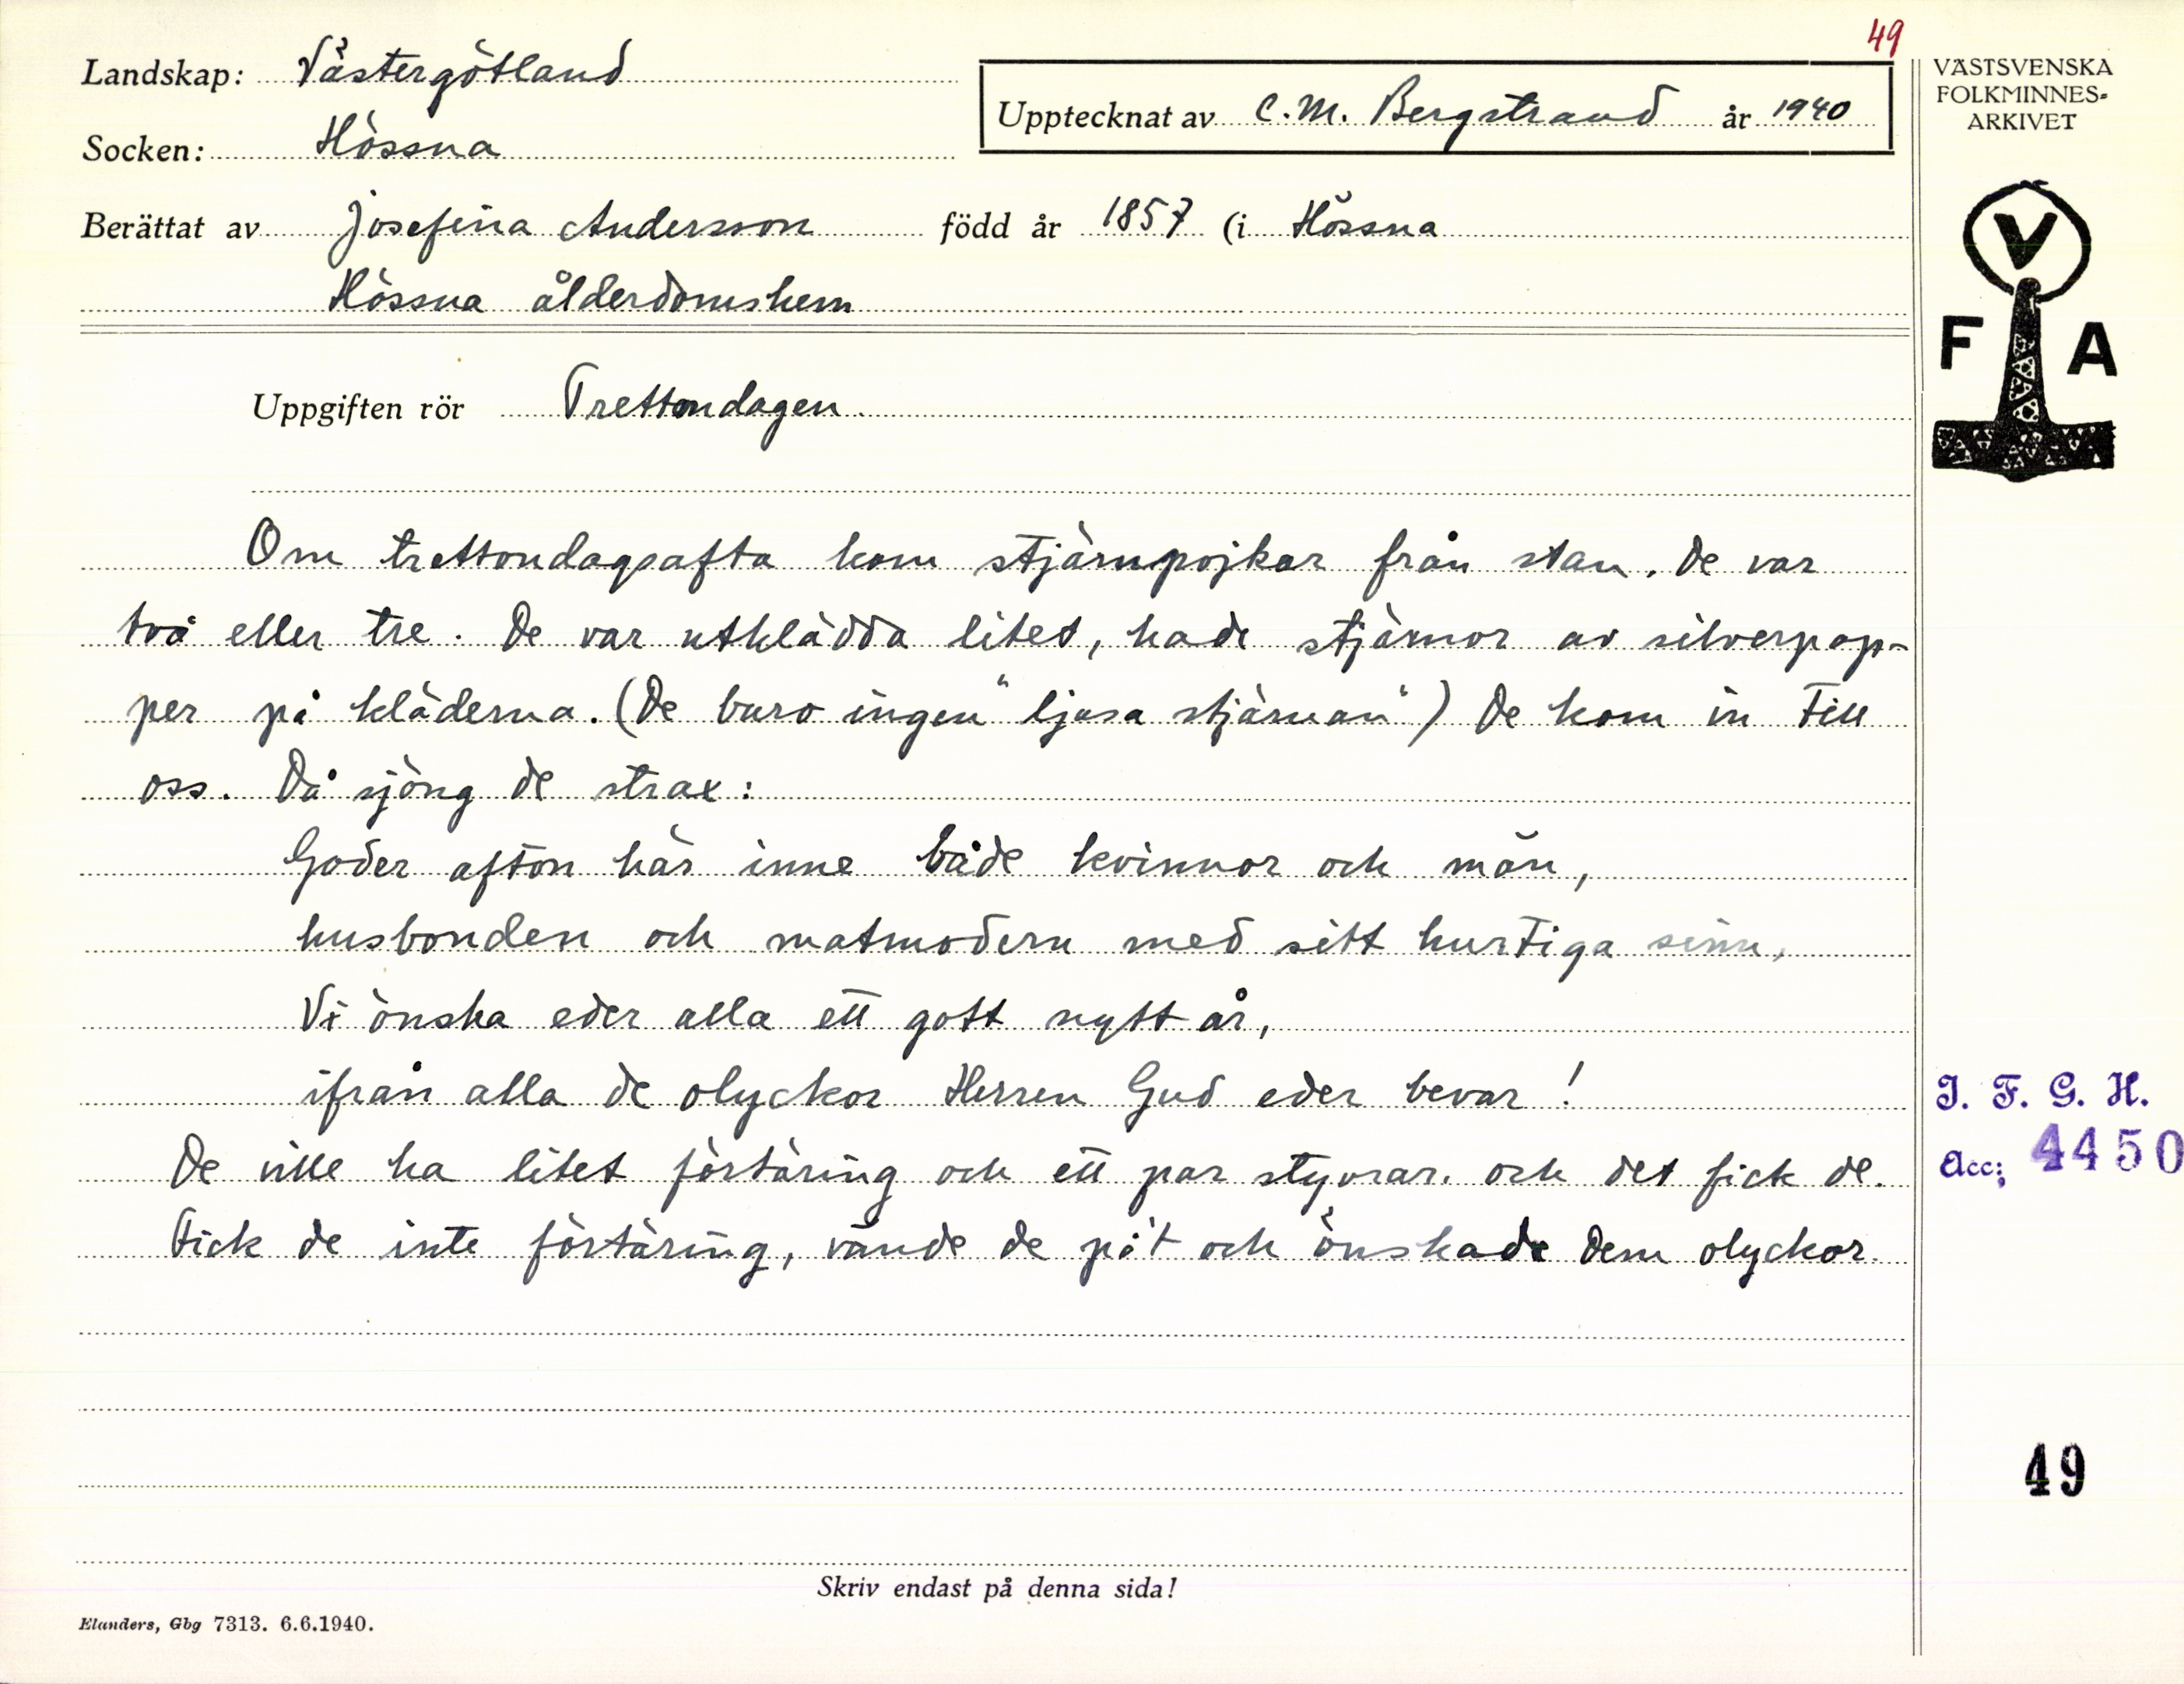 49
Landskap: Västergötland
Upptecknat av C.M. Bergstrand år 1940
Socken: Hössna
Berättat av Josefina Andersson född år 1857 (i Hössna
Hössna ålderdomshem
VÄSTSVENSKA
FOLKMINNES-
ARKIVET
V
F A
Uppgiften rör Trettondagen.
Om trettondagsafta kom stjärnpojkar från stan. De var
två eller tre. De var utklädda litet, hade stjärnor av silverpap-
per på kläderna. (De buro ingen "ljusa stjärnan") De kom in till
oss. Då sjöng de strax:
Goder afton här inne både kvinnor och män,
husbonden och matmodern med sitt hurtiga sinn,
Vi önska eder alla ett gott nytt år,
ifrån alla de olyckor Herren Gud eder bevar!
De ville ha litet förtäring och ett par styvrar. och det fick de.
Fick de inte förtäring, vände de på't och önskade dem olyckor.
I. F. G. H.
Acc; 4450
49
Skriv endast på denna sida!
Elanders, Gbg 7313. 6.6.1940.